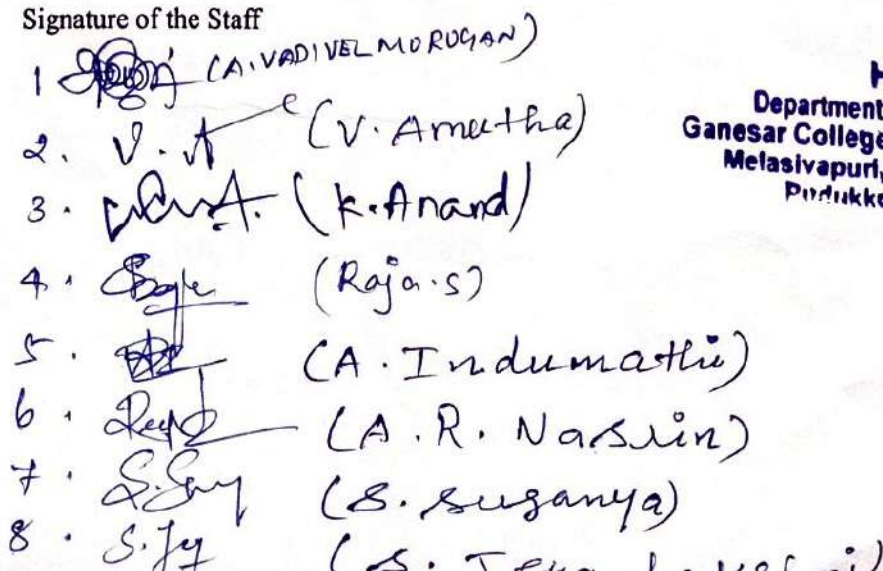 Signature of the Staff
1 (A. VADIVEL MURUGAN)
2. V. A (V. Ameetha)
3. (K. Anand)
4. (Raja. S)
5. (A. Indumathi)
6. (A. R. Nasrin)
7. (S. Suganya)
8. S. Jy (S.
H
Department
Ganesar College
Melasivapuri,
Pudukko